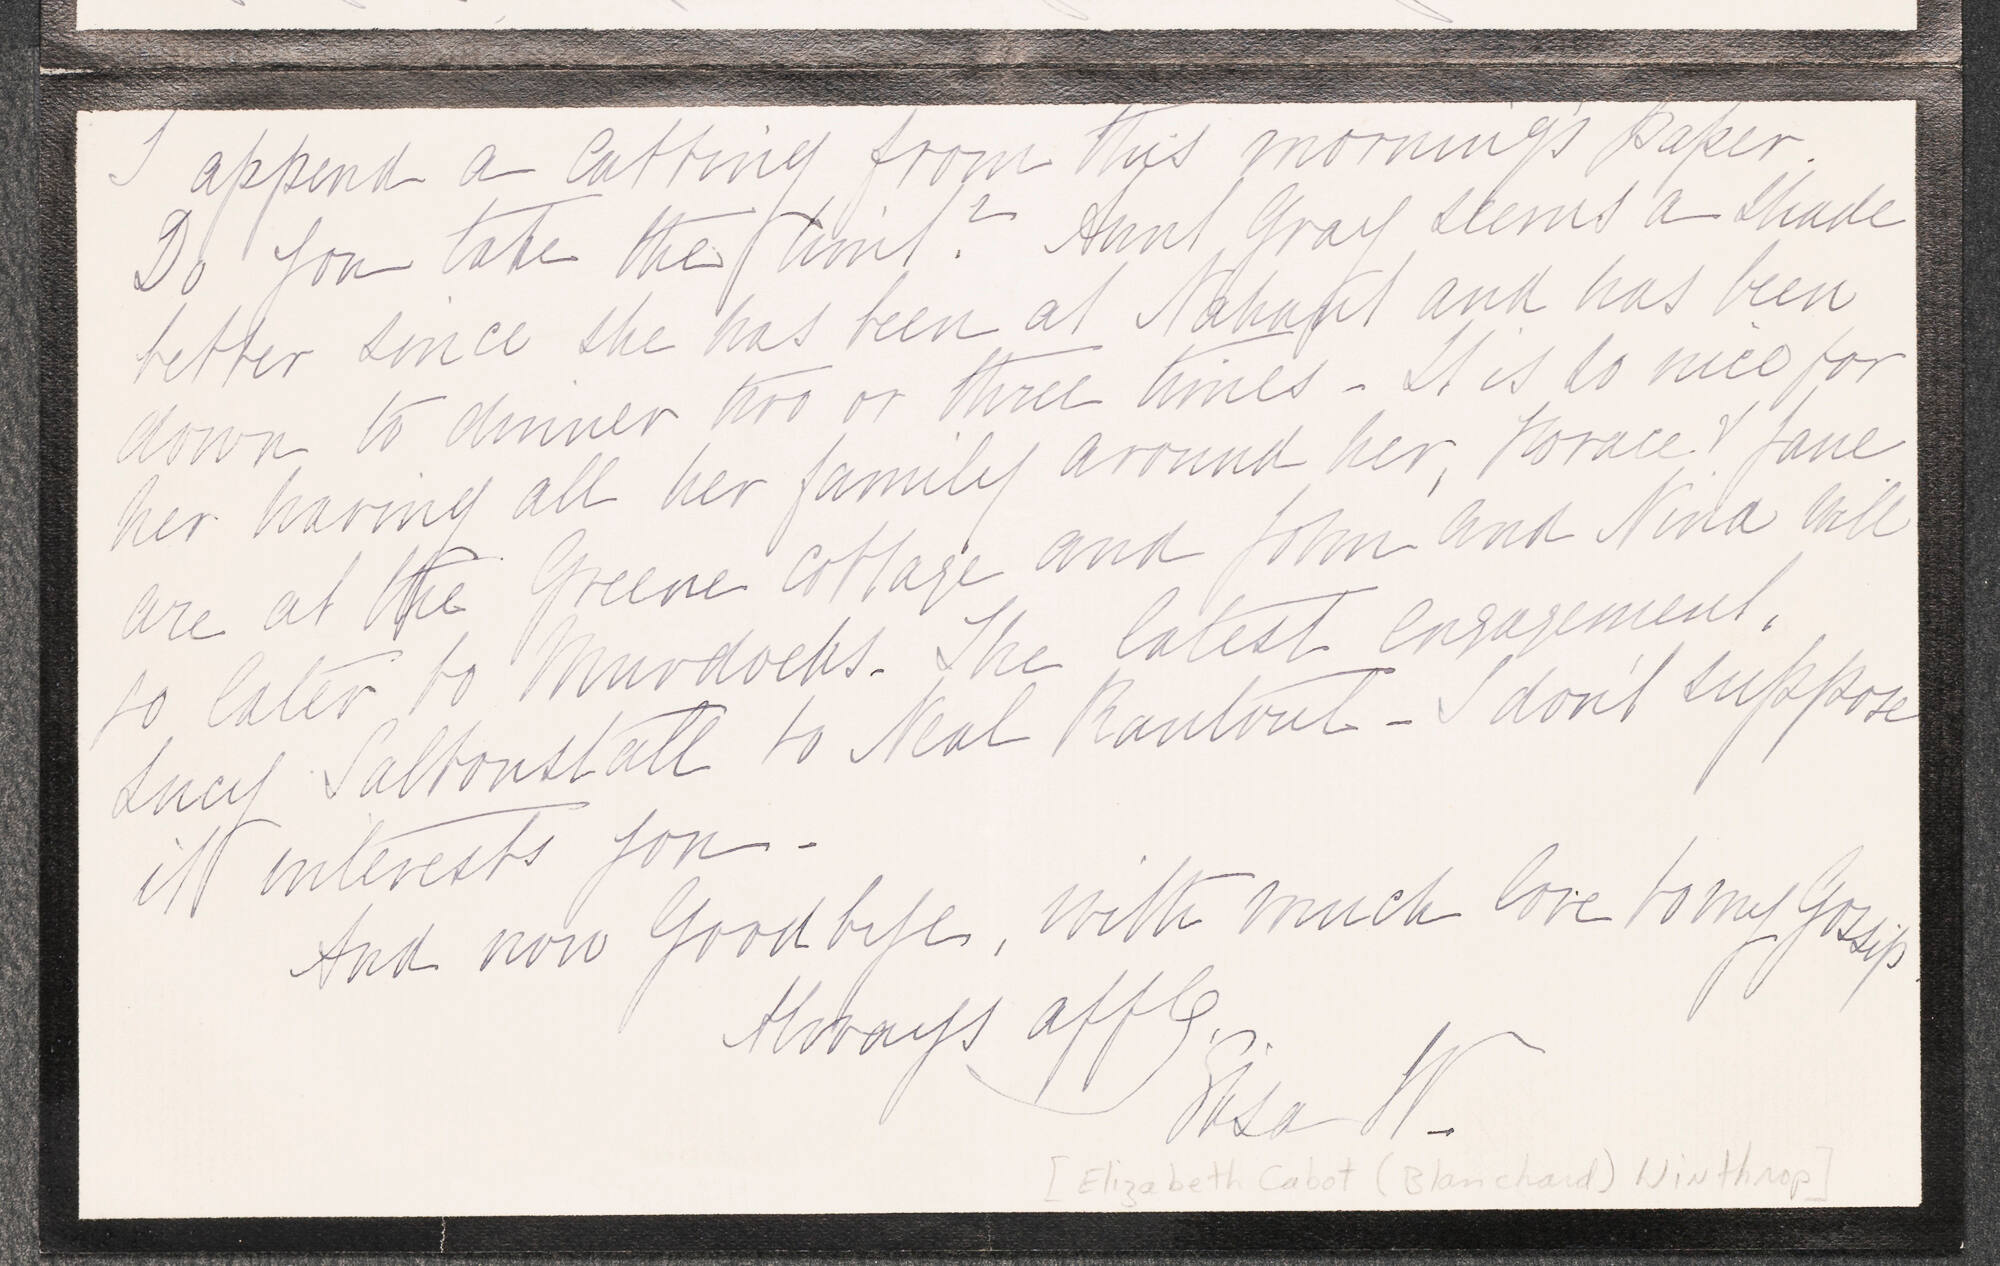 I append a cutting from this morning's paper.
Do you take the hint? Aunt Gray seems a shade
better since she has been at Nahant and has been
down to dinner two or three times - It is so nice for
her having all her family around her, Horace & Jane
are at the Greene cottage and John and Nina will
go later to Murdochs. The latest engagement.
Lucy Saltonstall to Neal Rantoul - I don't suppose
it interests you -
And now Goodbye, with much love to my Gossip.
Always affly.
Elisa W.
[Elizabeth Cabot (Blanchard) Winthrop]